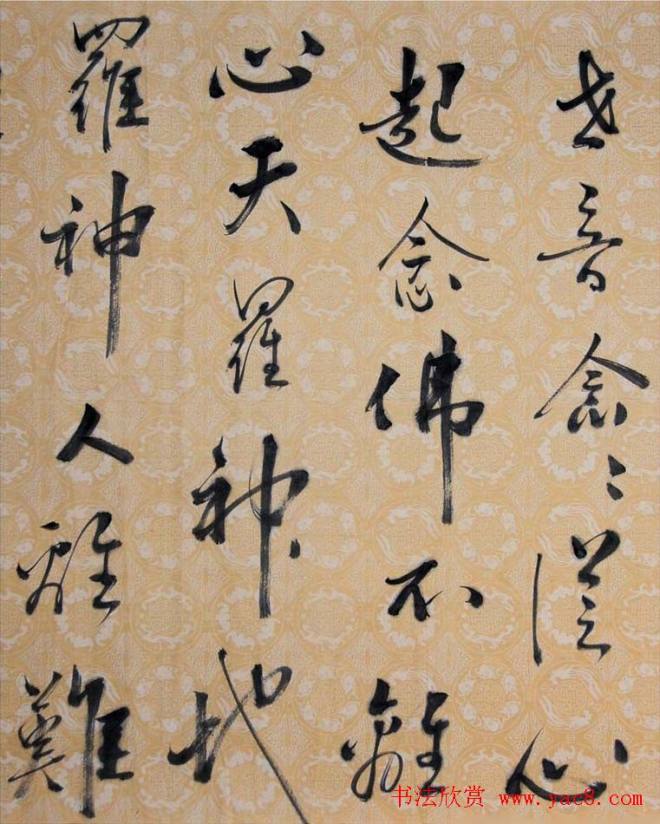 世音念〻從心
起念佛不離
心天羅神地
羅神人離難
书法欣赏 www.yac8.com